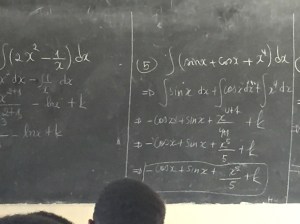 ∫(2x² - 1/x) dx
x² dx - ∫ 1/x dx
x^(2+1)/(2+1) - ln x + k
- ln x + k
(5) ∫(sin x + cos x + x⁴) dx
=D ∫ sin x dx + ∫ cos x dx + ∫ x⁴ dx
=> -cos x + sin x + x^(4+1)/(4+1) + k
=> -cos x + sin x + x⁵/5 + k
=> -cos x + sin x + x⁵/5 + k